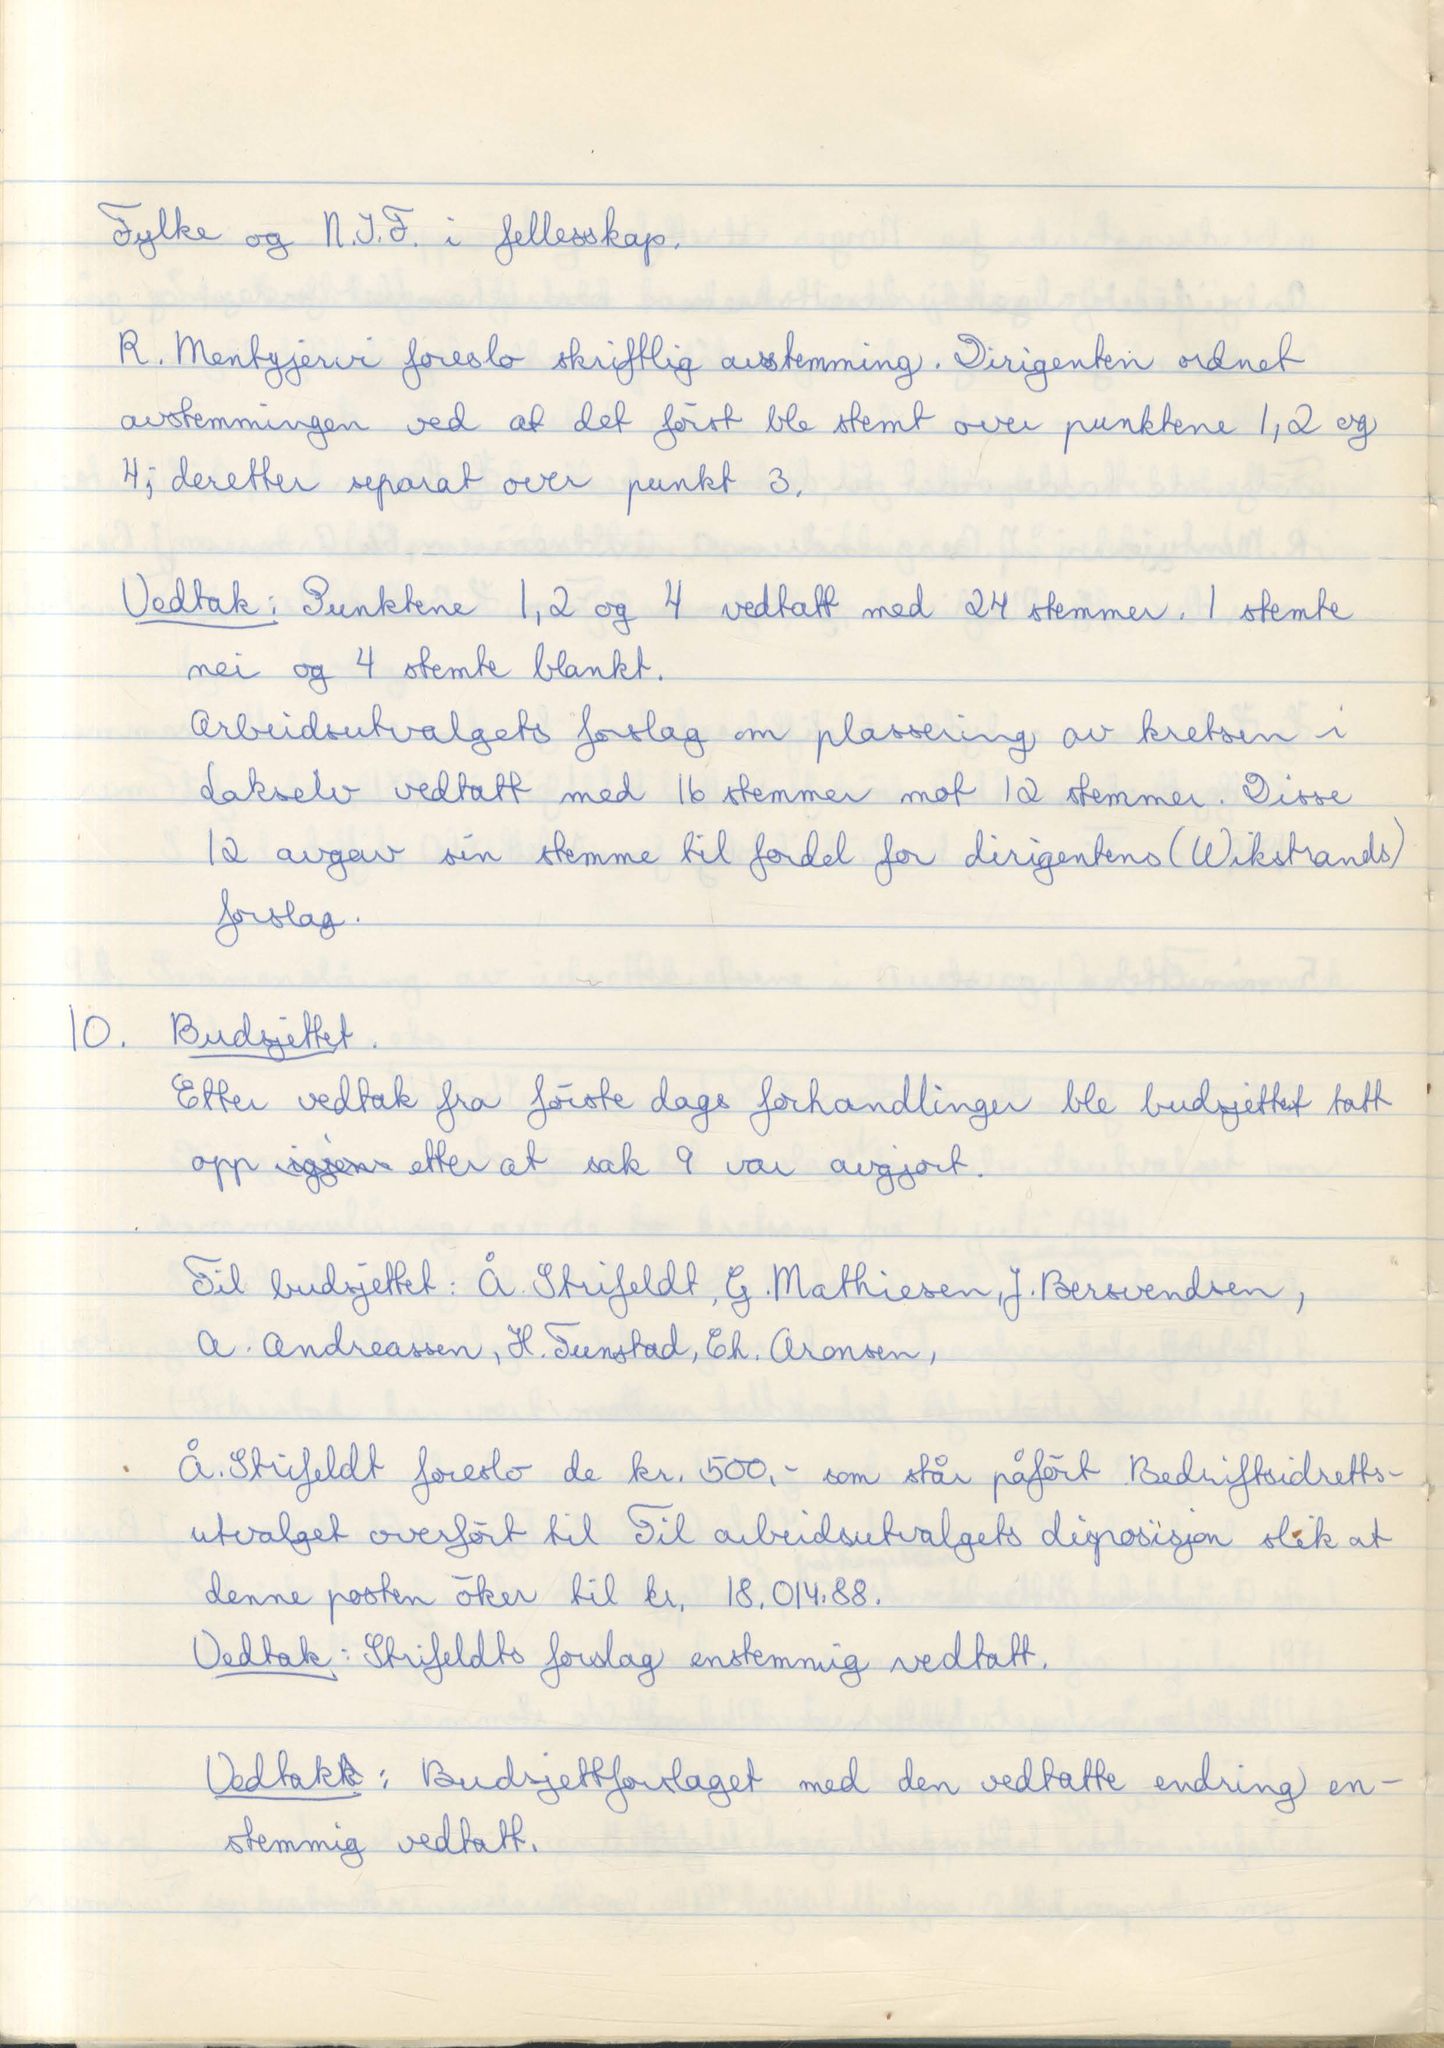 Fylke og N.I.F. i fellesskap.
R. Mentyjervi foreslo skriftlig avstemming. Dirigenten ordnet
avstemmingen ved at det först ble stemt over punktene 1, 2 og
4; deretter separat over punkt 3.
Vedtak: Punktene 1, 2 og 4 vedtatt med 24 stemmer. 1 stemte
nei og 4 stemte blankt.
Arbeidsutvalgets forslag om plassering av kretsen i
Lakselv vedtatt med 16 stemmer mot 12 stemmer. Disse
12 avgav sin stemme til fordel for dirigentens (Wikstrands)
forslag.
10. Budsjettet.
Etter vedtak fra förste dags forhandlinger ble budsjettet tatt
opp igjen etter at sak 9 var avgjort.
Til budsjettet: Å. Strifeldt, G. Mathiesen, J. Bersvendsen,
A. Andreassen, H. Tunstad, Ch. Aronsen,
Å. Strifeldt foreslo de kr. 500,- som står påfört Bedriftsidretts-
utvalget overfört til Til arbeidsutvalgets diposisjon slik at
denne posten öker til kr. 18.014.88.
Vedtak: Strifeldts forslag enstemmig vedtatt.
Vedtak: Budsjettforslaget med den vedtatte endring en-
stemmig vedtatt.